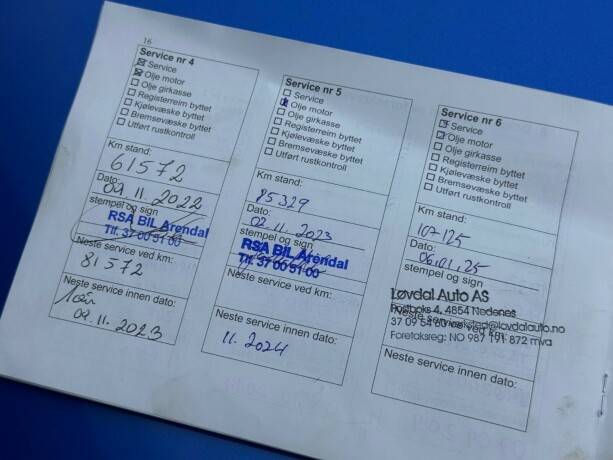 16
Service nr 4
Service
Olje motor
Olje girkasse
Registerreim byttet
Kjølevæske byttet
Bremsevæske byttet
Utført rustkontroll
Km stand:
61572
Dato:
09.11.2022
stempel og sign
RSA BIL Arendal
Tlf. 37 00 51 00
Neste service ved km:
81572
Neste service innen dato:
09.11.2023
Service nr 5
Service
Olje motor
Olje girkasse
Registerreim byttet
Kjølevæske byttet
Bremsevæske byttet
Utført rustkontroll
Km stand:
85329
Dato:
02.11.2023
stempel og sign
RSA BIL Arendal
Tlf. 37 00 51 00
Neste service ved km:
Neste service innen dato:
11.2024
Service nr 6
Service
Olje motor
Olje girkasse
Registerreim byttet
Kjølevæske byttet
Bremsevæske byttet
Utført rustkontroll
Km stand:
107125
Dato:
06.01.25
stempel og sign
Løvdal Auto AS
Postboks 4, 4854 Nedenes
Neste service ved km
37 09 54 60
lavdalauto.no
Foretaksreg: NO 987 191 872 mva
Neste service innen dato: